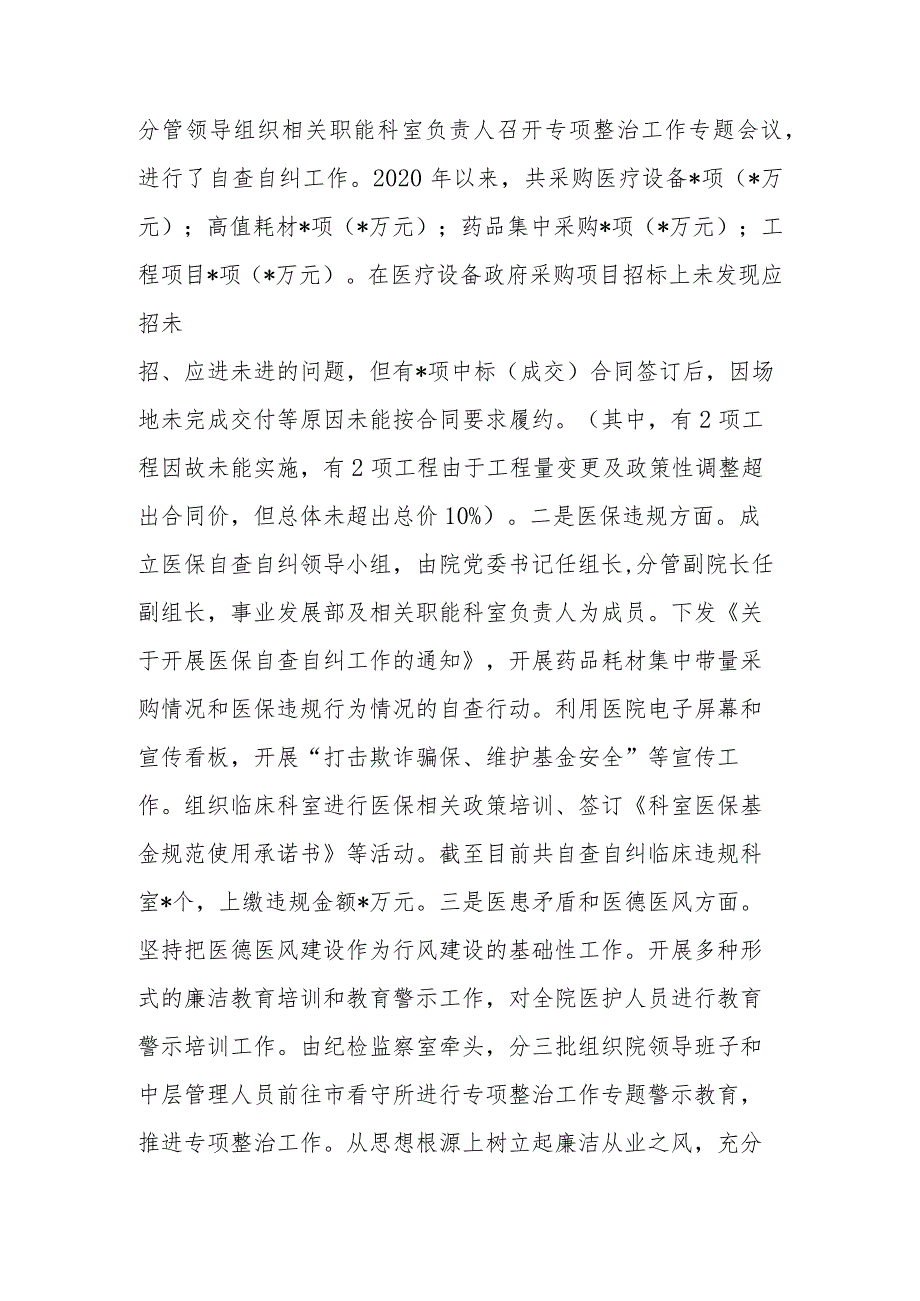 分管领导组织相关职能科室负责人召开专项整治工作专题会议，
进行了自查自纠工作。2020 年以来，共采购医疗设备*项（*万
元）；高值耗材*项（*万元）；药品集中采购*项（*万元）；工
程项目*项（*万元）。在医疗设备政府采购项目招标上未发现应
招未
招、应进未进的问题，但有*项中标（成交）合同签订后，因场
地未完成交付等原因未能按合同要求履约。（其中，有 2 项工
程因故未能实施，有 2 项工程由于工程量变更及政策性调整超
出合同价，但总体未超出总价 10%）。二是医保违规方面。成
立医保自查自纠领导小组，由院党委书记任组长,分管副院长任
副组长，事业发展部及相关职能科室负责人为成员。下发《关
于开展医保自查自纠工作的通知》，开展药品耗材集中带量采
购情况和医保违规行为情况的自查行动。利用医院电子屏幕和
宣传看板，开展“打击欺诈骗保、维护基金安全”等宣传工
作。组织临床科室进行医保相关政策培训、签订《科室医保基
金规范使用承诺书》等活动。截至目前共自查自纠临床违规科
室*个，上缴违规金额*万元。三是医患矛盾和医德医风方面。
坚持把医德医风建设作为行风建设的基础性工作。开展多种形
式的廉洁教育培训和教育警示工作，对全院医护人员进行教育
警示培训工作。由纪检监察室牵头，分三批组织院领导班子和
中层管理人员前往市看守所进行专项整治工作专题警示教育，
推进专项整治工作。从思想根源上树立起廉洁从业之风，充分